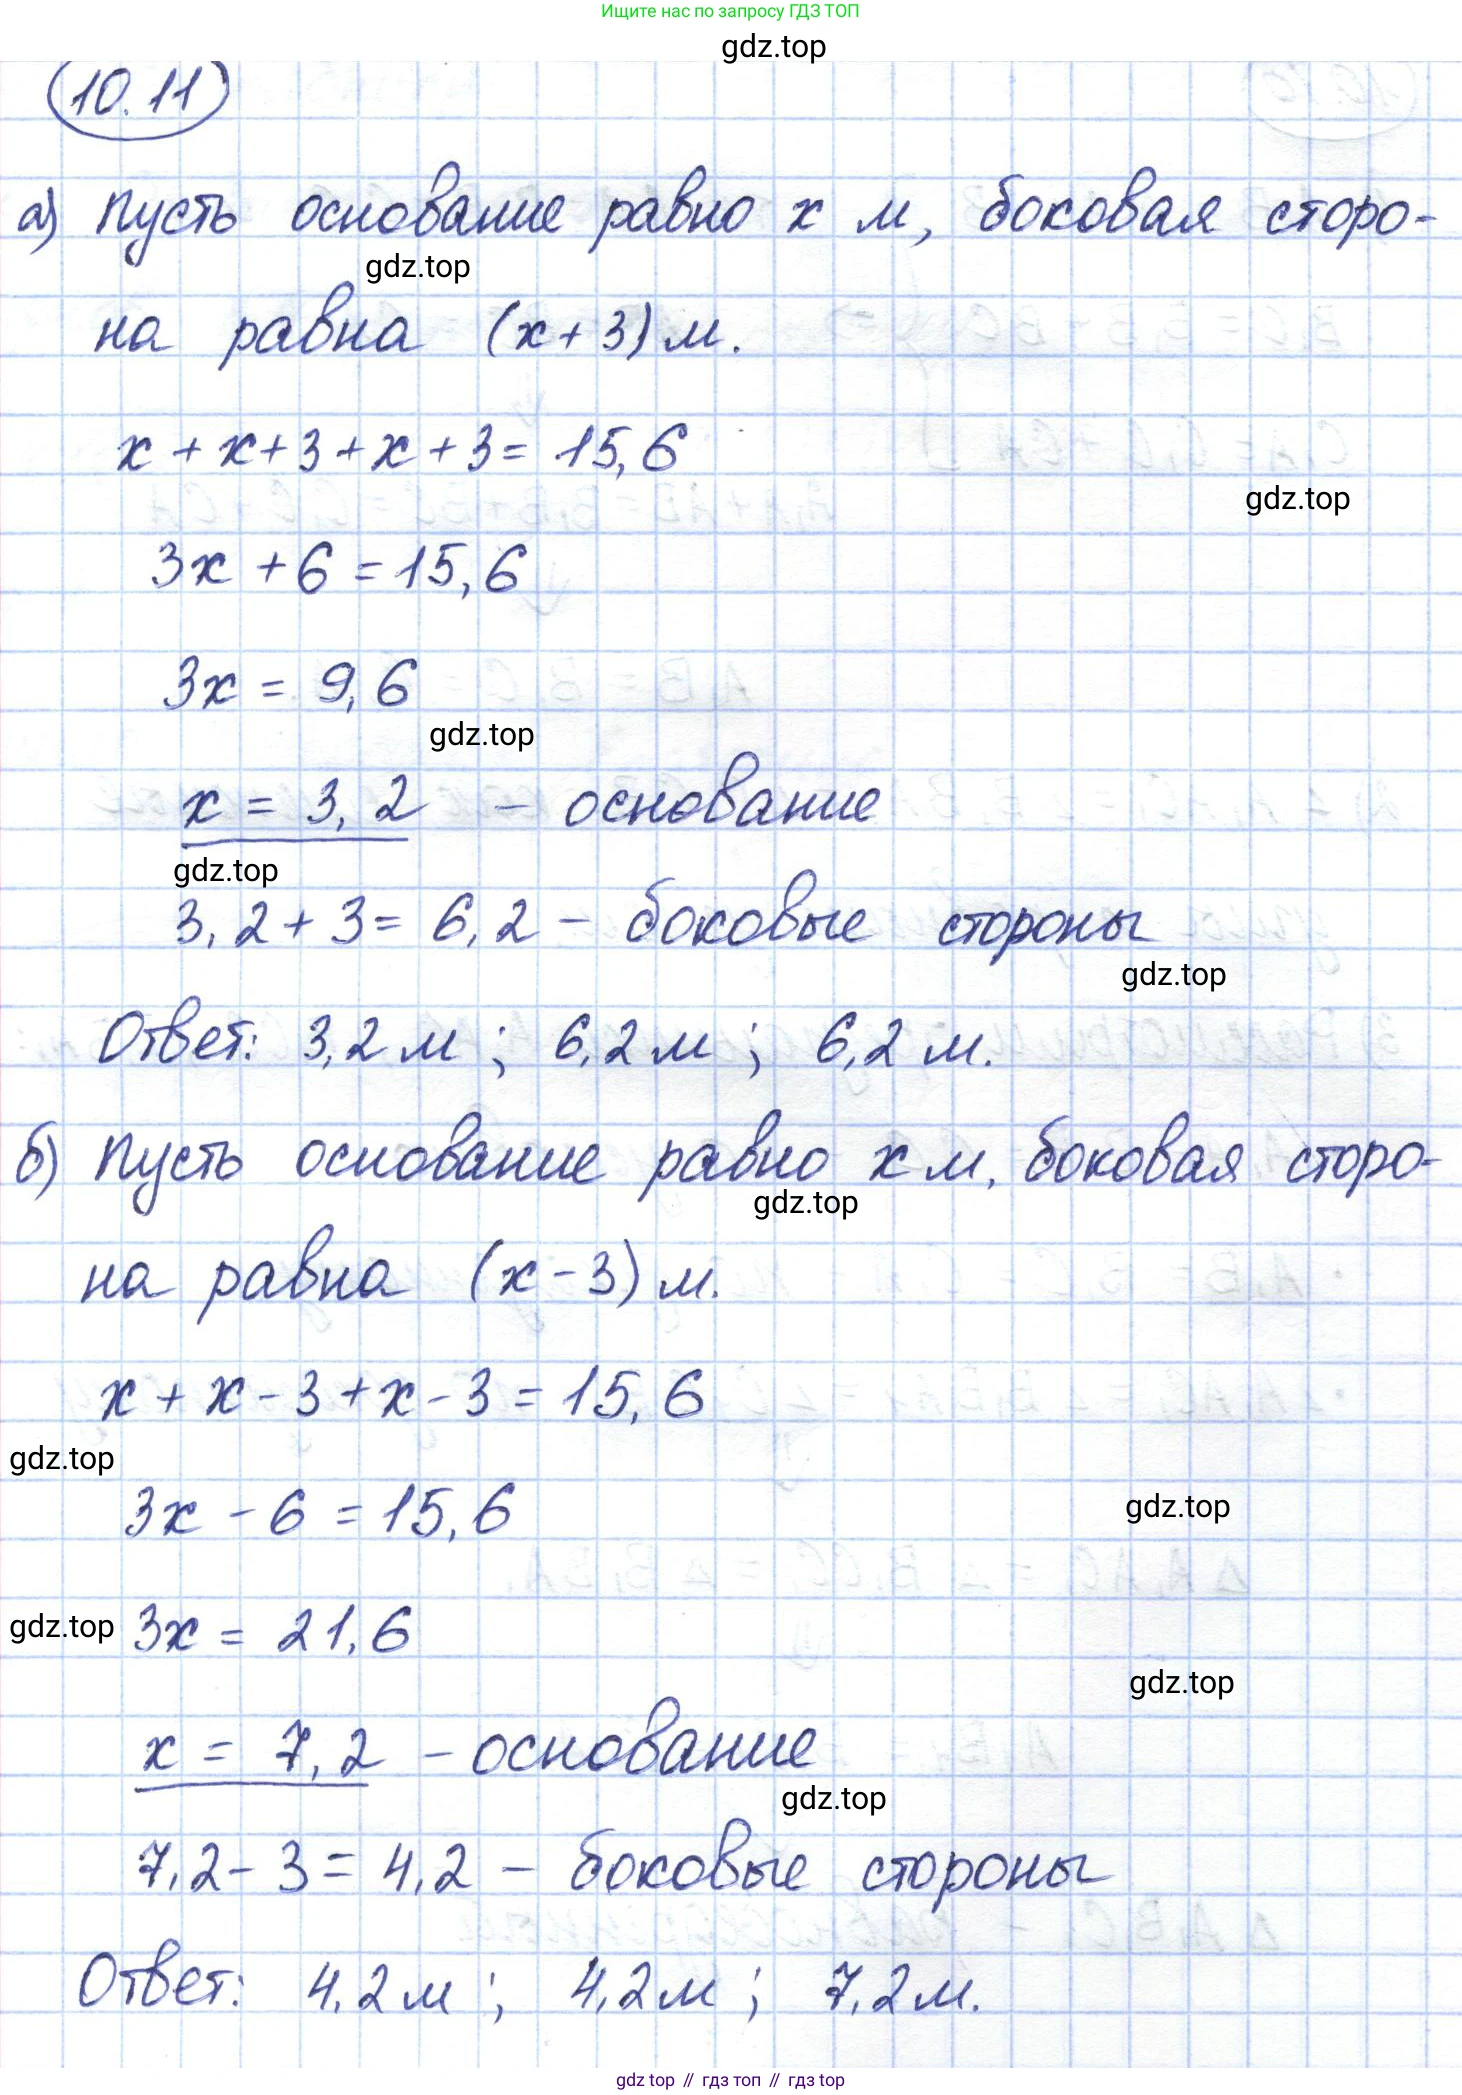 Ищите нас по запросу ГДЗ ТОП
gdz.top
10.11
а) Пусть основание равно x м, боковая сторо-
gdz.top
на равна (x+3) м.
x + x + 3 + x + 3 = 15,6
gdz.top
3x + 6 = 15,6
3x = 9,6
gdz.top
x = 3,2 - основание
gdz.top
3,2 + 3 = 6,2 - боковые стороны
gdz.top
Ответ: 3,2 м ; 6,2 м ; 6,2 м.
б) Пусть основание равно x м, боковая сторо-
gdz.top
на равна (x - 3) м.
x + x - 3 + x - 3 = 15,6
gdz.top
3x - 6 = 15,6
gdz.top
gdz.top 3x = 21,6
gdz.top
x = 7,2 - основание
gdz.top
7,2 - 3 = 4,2 - боковые стороны
Ответ: 4,2 м ; 4,2 м ; 7,2 м.
gdz top // гдз топ // гдз top